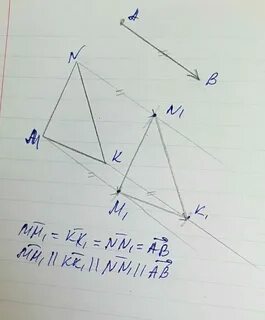 A
B
N
N₁
M
K
M₁
K₁
M̄M̄₁ = K̄K̄₁ = N̄N̄₁ = A͞B
M̄M̄₁ || K̄K̄₁ || N̄N̄₁ || A͞B